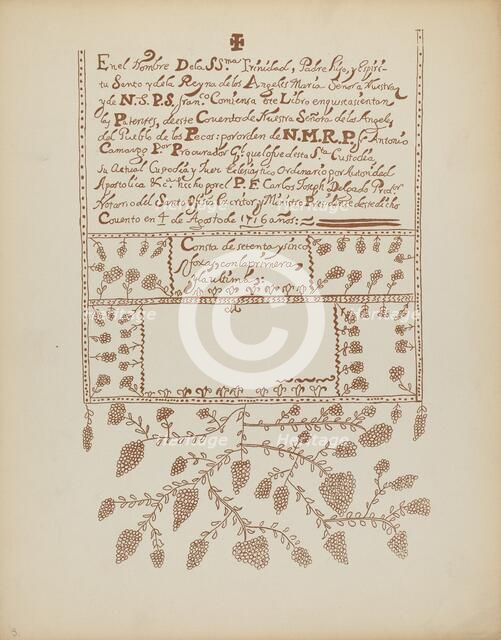 ✠
En el Nombre De la SS.ma Trinidad, Padre, Hijo, y Espiri-
tu Santo y de la Reyna de los Angeles Maria Señora Nuestra
y de N.S.P.S. fran.co Comiensa este Libro en que se asientan
las Patentes, de este Convento de Nuestra Señora de los Angeles
del Pueblo de los Pecos: por orden de N.M.R.P. fr. Antonio
Camargo Por Procurador G.l que lo fue de esta S.ta Custodia,
su Actual Custodio y Juez Eclesiastico Ordinario por Autoridad
Apostolica &c.a hecho por el P. F. Carlos Joseph Delgado Pred.or
Notario del Santo Oficio, Escritor y Ministro Presidente de este dicho
Covento en 4 de Agosto de 1716 años:
Consta de setenta y sinco
foxas con la primera
y la ultima:
Heritage
Heritage
Heritage
Heritage
Heritage
Heritage
3.